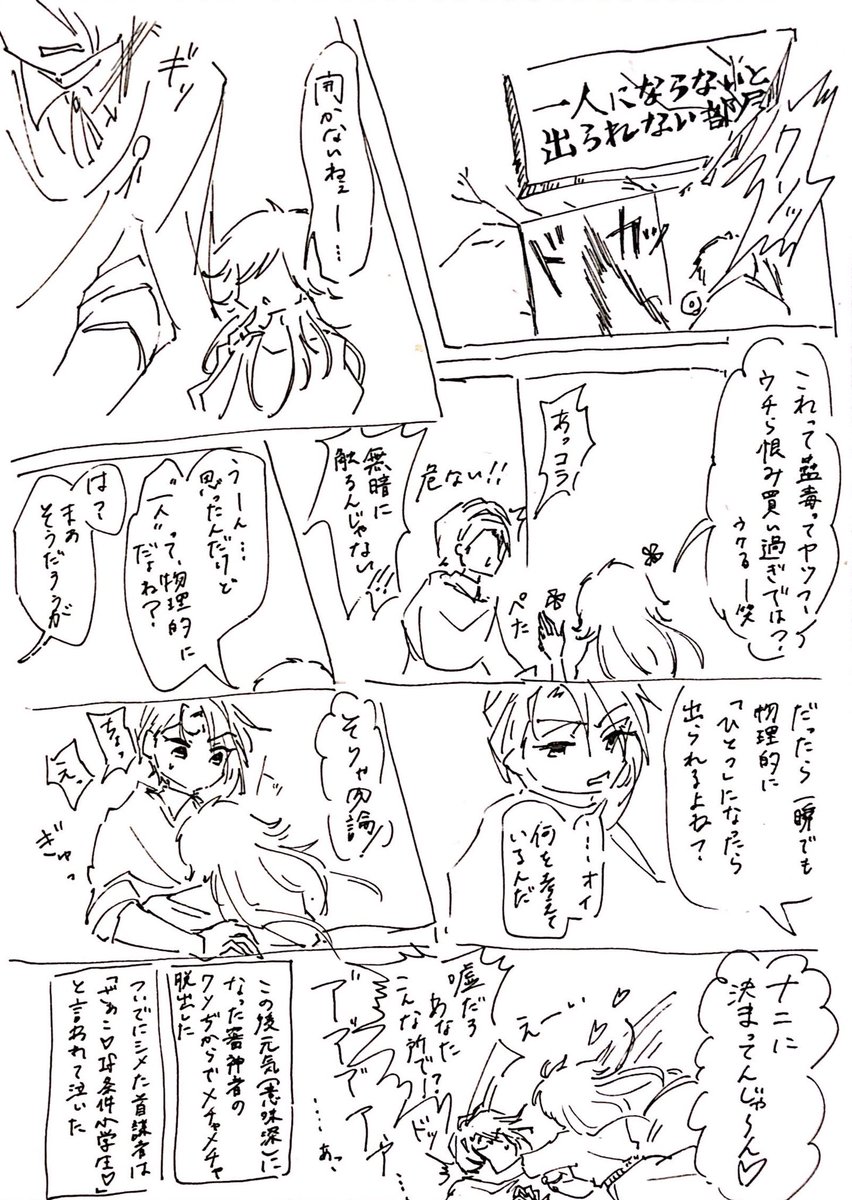 一人にならないと
出られない部屋
ドガッ
開かないねぇ
ー…
ギッ
これって蠱毒ってヤツー?
ウチら恨み買い過ぎでは?
ウケるー笑
あっコラ
危ない!!
無暗に
触るんじゃない!!
ぺた
うーん…
思ったんだけど
“一人”って、物理的に
だよね?
は?
まあ
そうだろうが
だったら一瞬でも
物理的に
「ひとつ」になったら
出られるよね?
…オイ
何を考えて
いるんだ
そりゃ勿論!
ちょっ
えっ
ぎゅっ
ナニに
決まってんじゃ〜ん♡
えーい♡
嘘だろ
あなた
こんな所で!?
ドッ
……あっ、
この後元気(意味深)に
なった審神者の
ワンぢからでメチャメチャ
脱出した
ついでにシメた首謀者は
と言われて泣いた